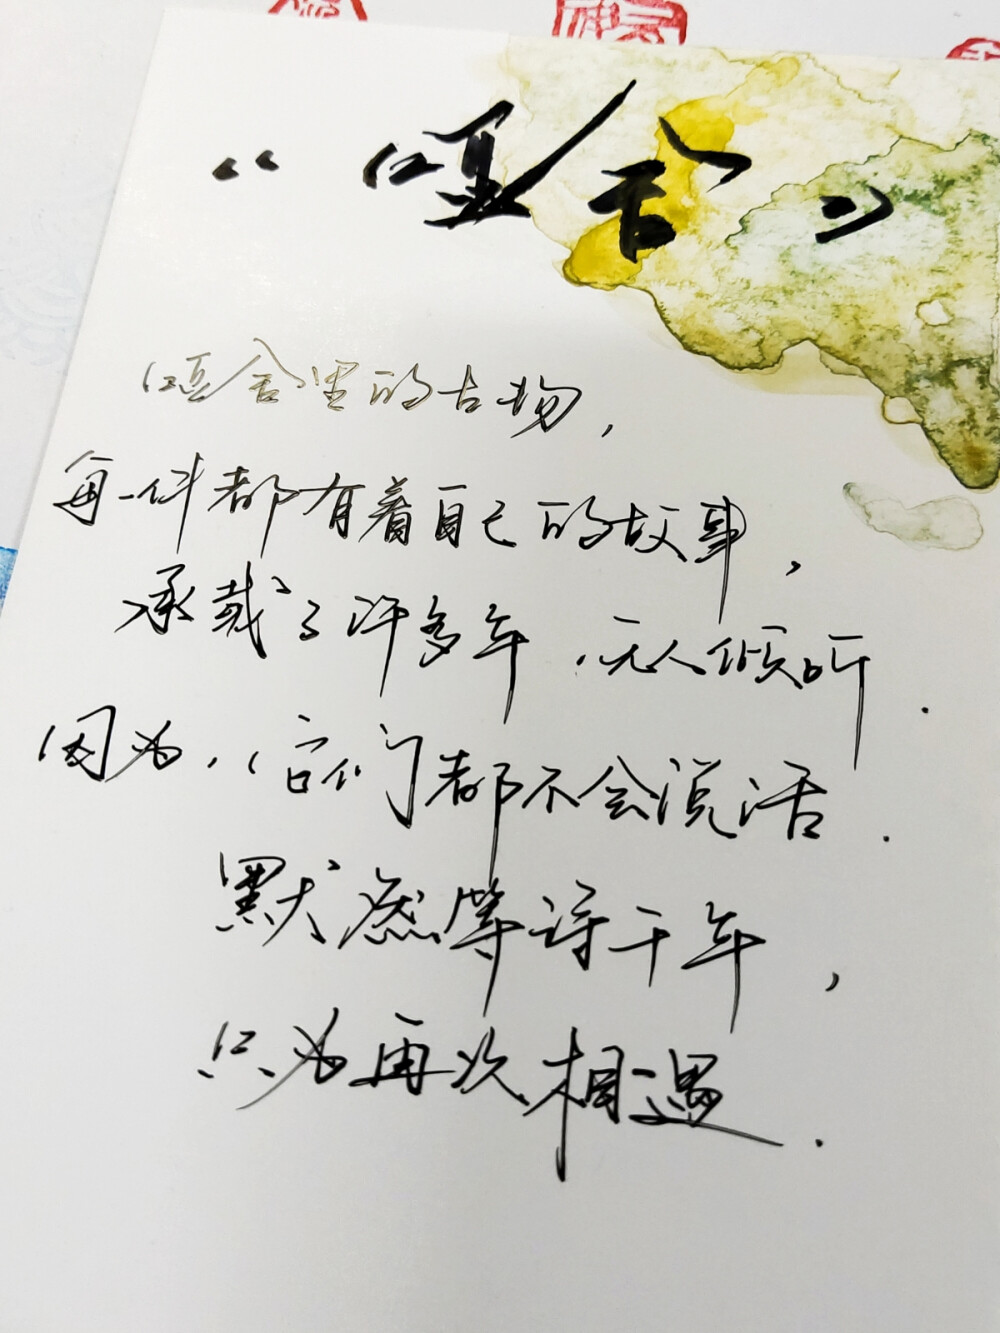 “哑舍”
哑舍里的古物，
每一件都有着自己的故事，
承载了许多年，无人倾听．
因为，它们都不会说话．
默然等待千年，
只为再次相遇．